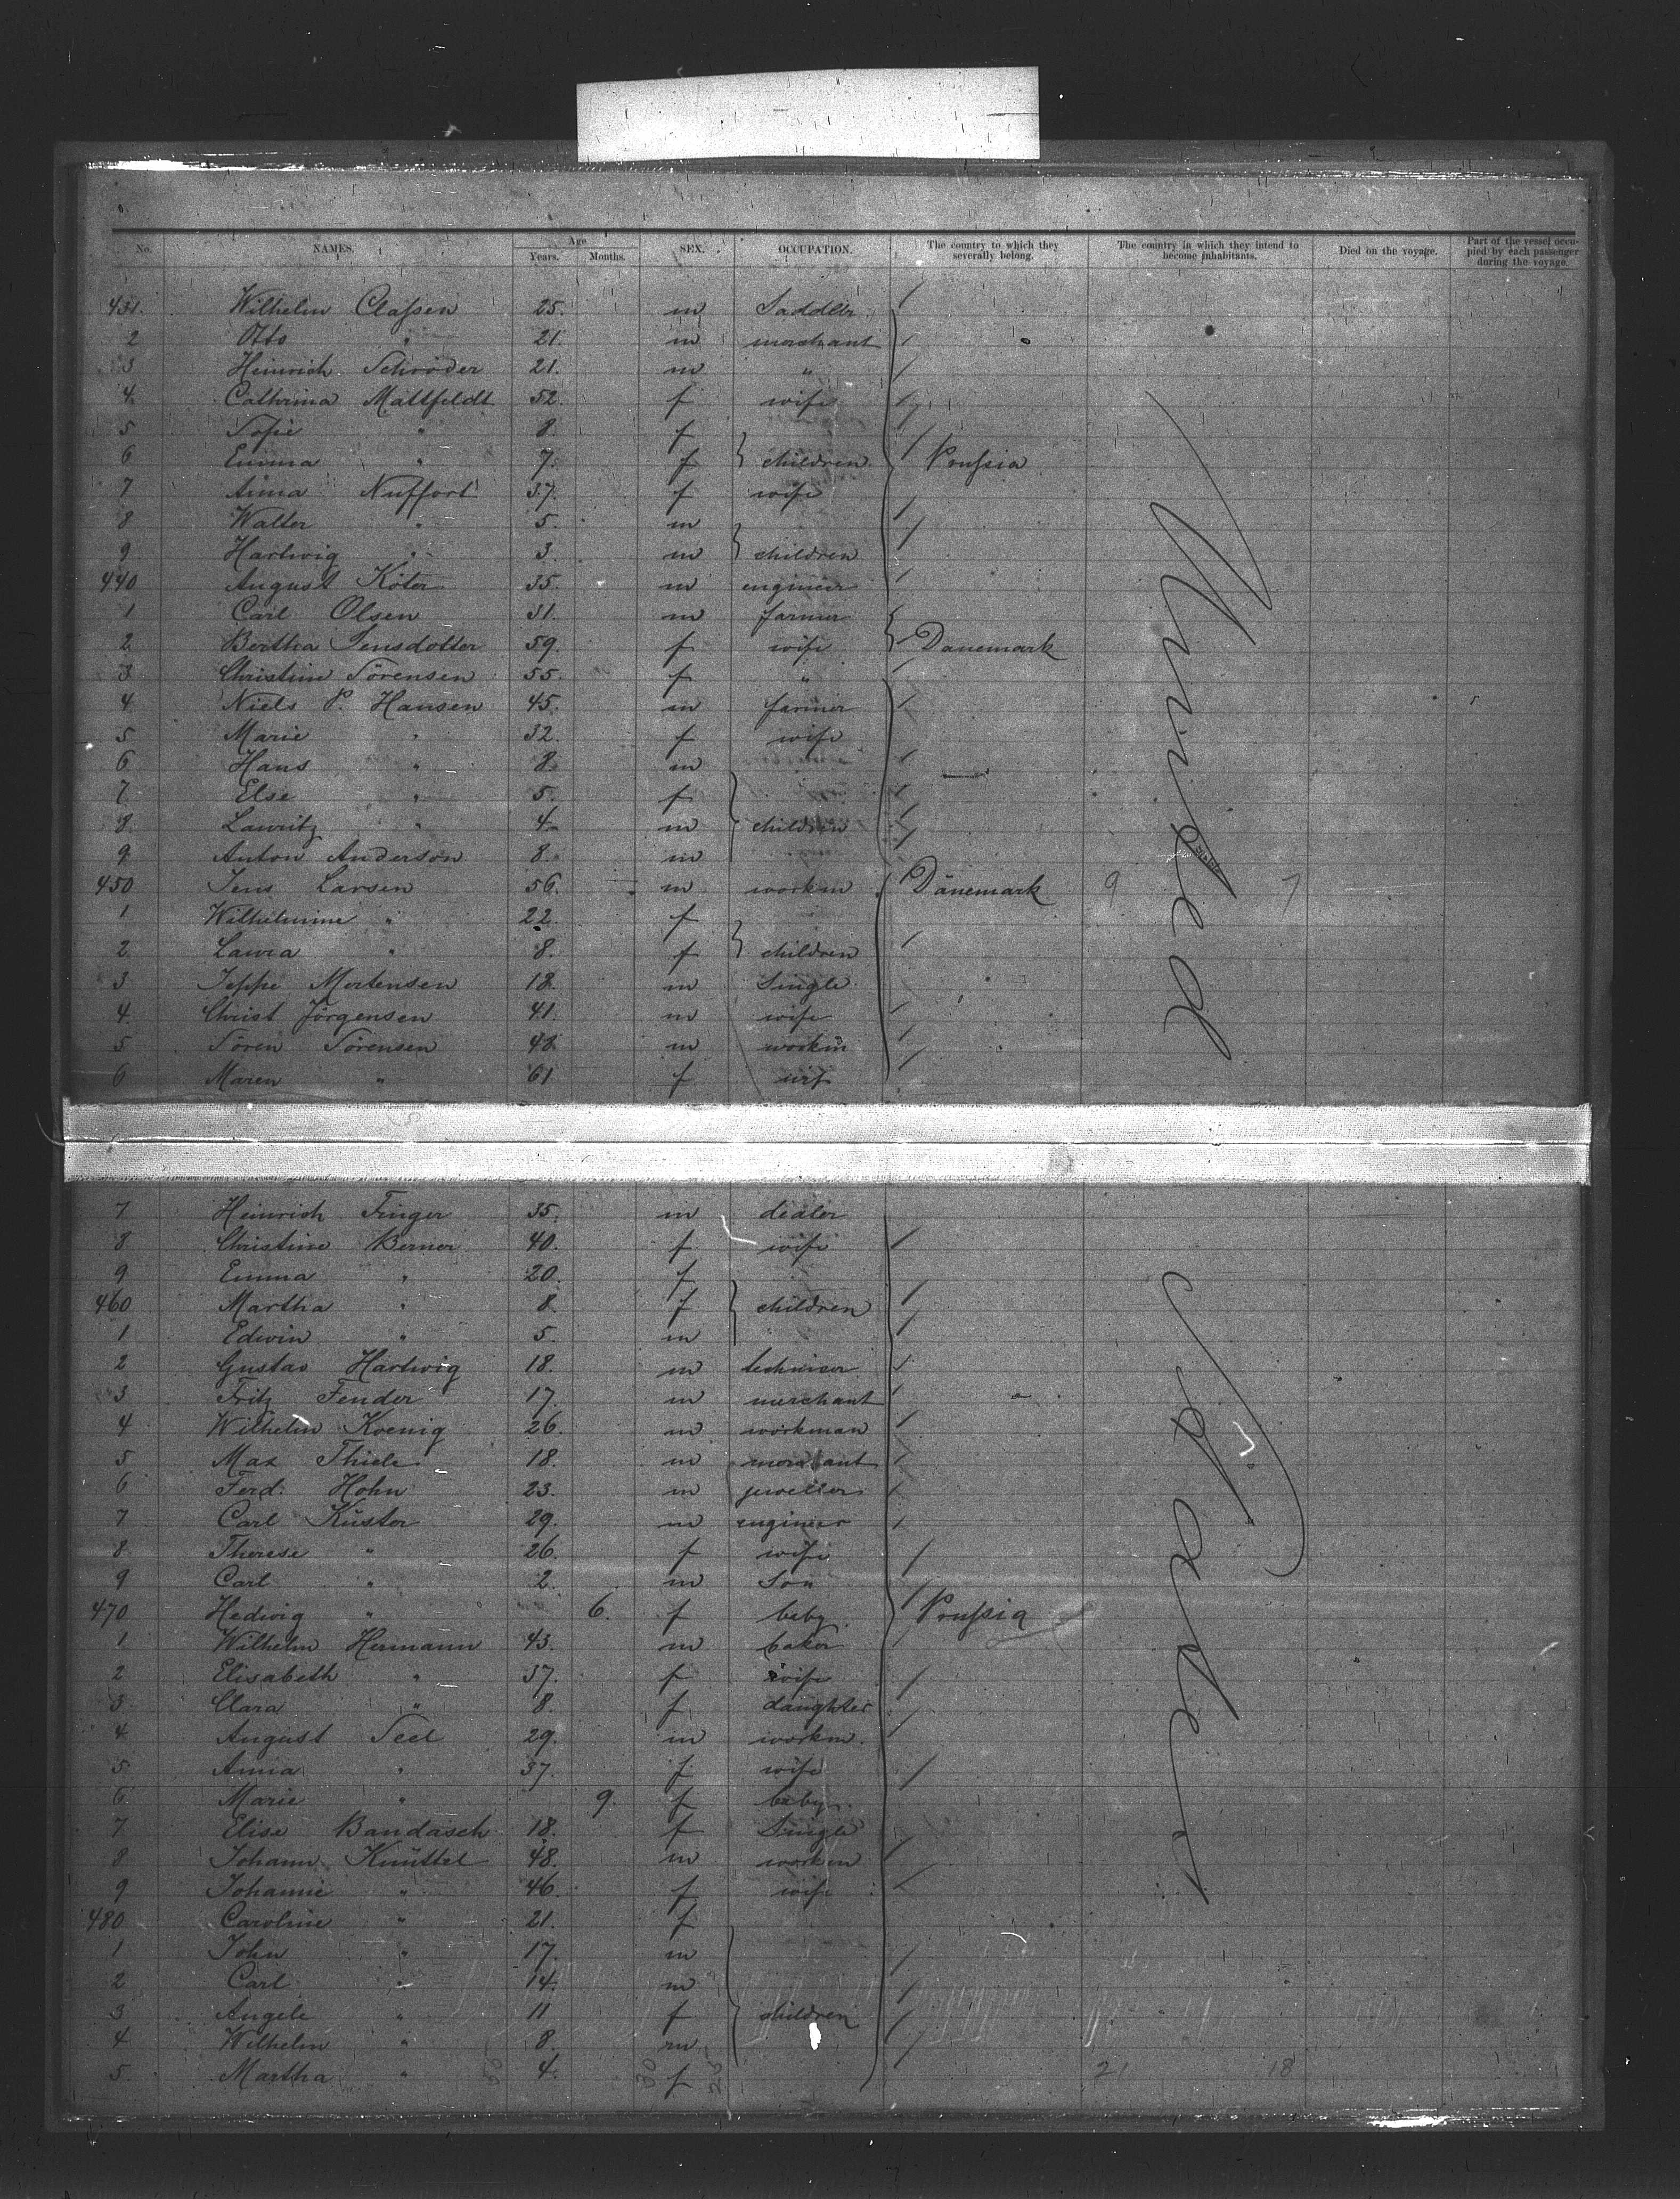 No. NAMES. Age Years. Months. SEX. OCCUPATION. The country to which they severally belong. The country in which they intend to become inhabitants. Died on the voyage. Part of the vessel occupied by each passenger during the voyage.
431. Wilhelm Claſsen 25. m Saddler
2 Otto " 21. m merchant
3 Heinrich Schröder 21. m "
4. Cathrina Mattfeldt 52. f wife
5 Sofie " 8. f
6 Emma " 7. f children Pruſsia
7 Anna Nuffort 37. f wife
8 Walter " 5. m
9 Hartwig " 3. m children
440 August Köter 35. m engineer
1 Carl Olsen 31. m farmer
2 Bertha Jensdotter 59. f wife Danemark
3 Christine Sörensen 55. f "
4 Niels P. Hansen 45. m farmer
5 Marie " 32. f wife
6 Hans " 8. m
7. Else " 5. f
8. Lauritz " 4. m children
9. Anton Anderson 8. m
450 Jens Larsen 56. m workm Dänemark 9 7
1 Wilhelmine " 22. f
2 Laura " 8. f children
3 Jeppe Mortensen 18. m Single
4. Christ Jörgensen 41. m wife
5 Sören Sörensen 48. m workm
6 Maren " 61 f wif
United
7 Heinrich Finger 35. m dealer
8. Christine Berner 40. f wife
9 Emma " 20. f
460 Martha " 8. f children
1 Edwin " 5. m
2 Gustav Hartwig 18. m
3 Fritz Fender 17. m merchant
4 Wilhelm Koenig 26. m workman
5 Max Thiele 18. m merchant
6 Ferd. Hohn 23. m jeweller
7 Carl Küster 29. m engineer
8 Therese " 26. f wife
9 Carl " 2. m Son
470 Hedwig " 6. f baby Pruſsia
1 Wilhelm Hermann 43. m baker
2 Elisabeth " 37. f wife
3 Clara " 8. f daughter
4 August Seel 29. m workm.
5 Anna " 37. f wife
6 Marie " 9. f baby
7 Elise Bandasch 18. f Single
8 Johann Knüttel 48. m workm
9 Johanne " 46. f wife
480 Caroline " 21. f
1 John " 17. m
2 Carl " 14. m
3 Angele " 11 f children
4 Wilhelm " 8. m
5. Martha " 4. f 21 18
States
50 30 20